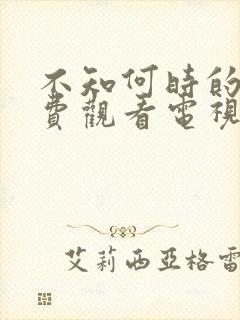 不知何時的
費觀看電視
艾莉西亞格雷